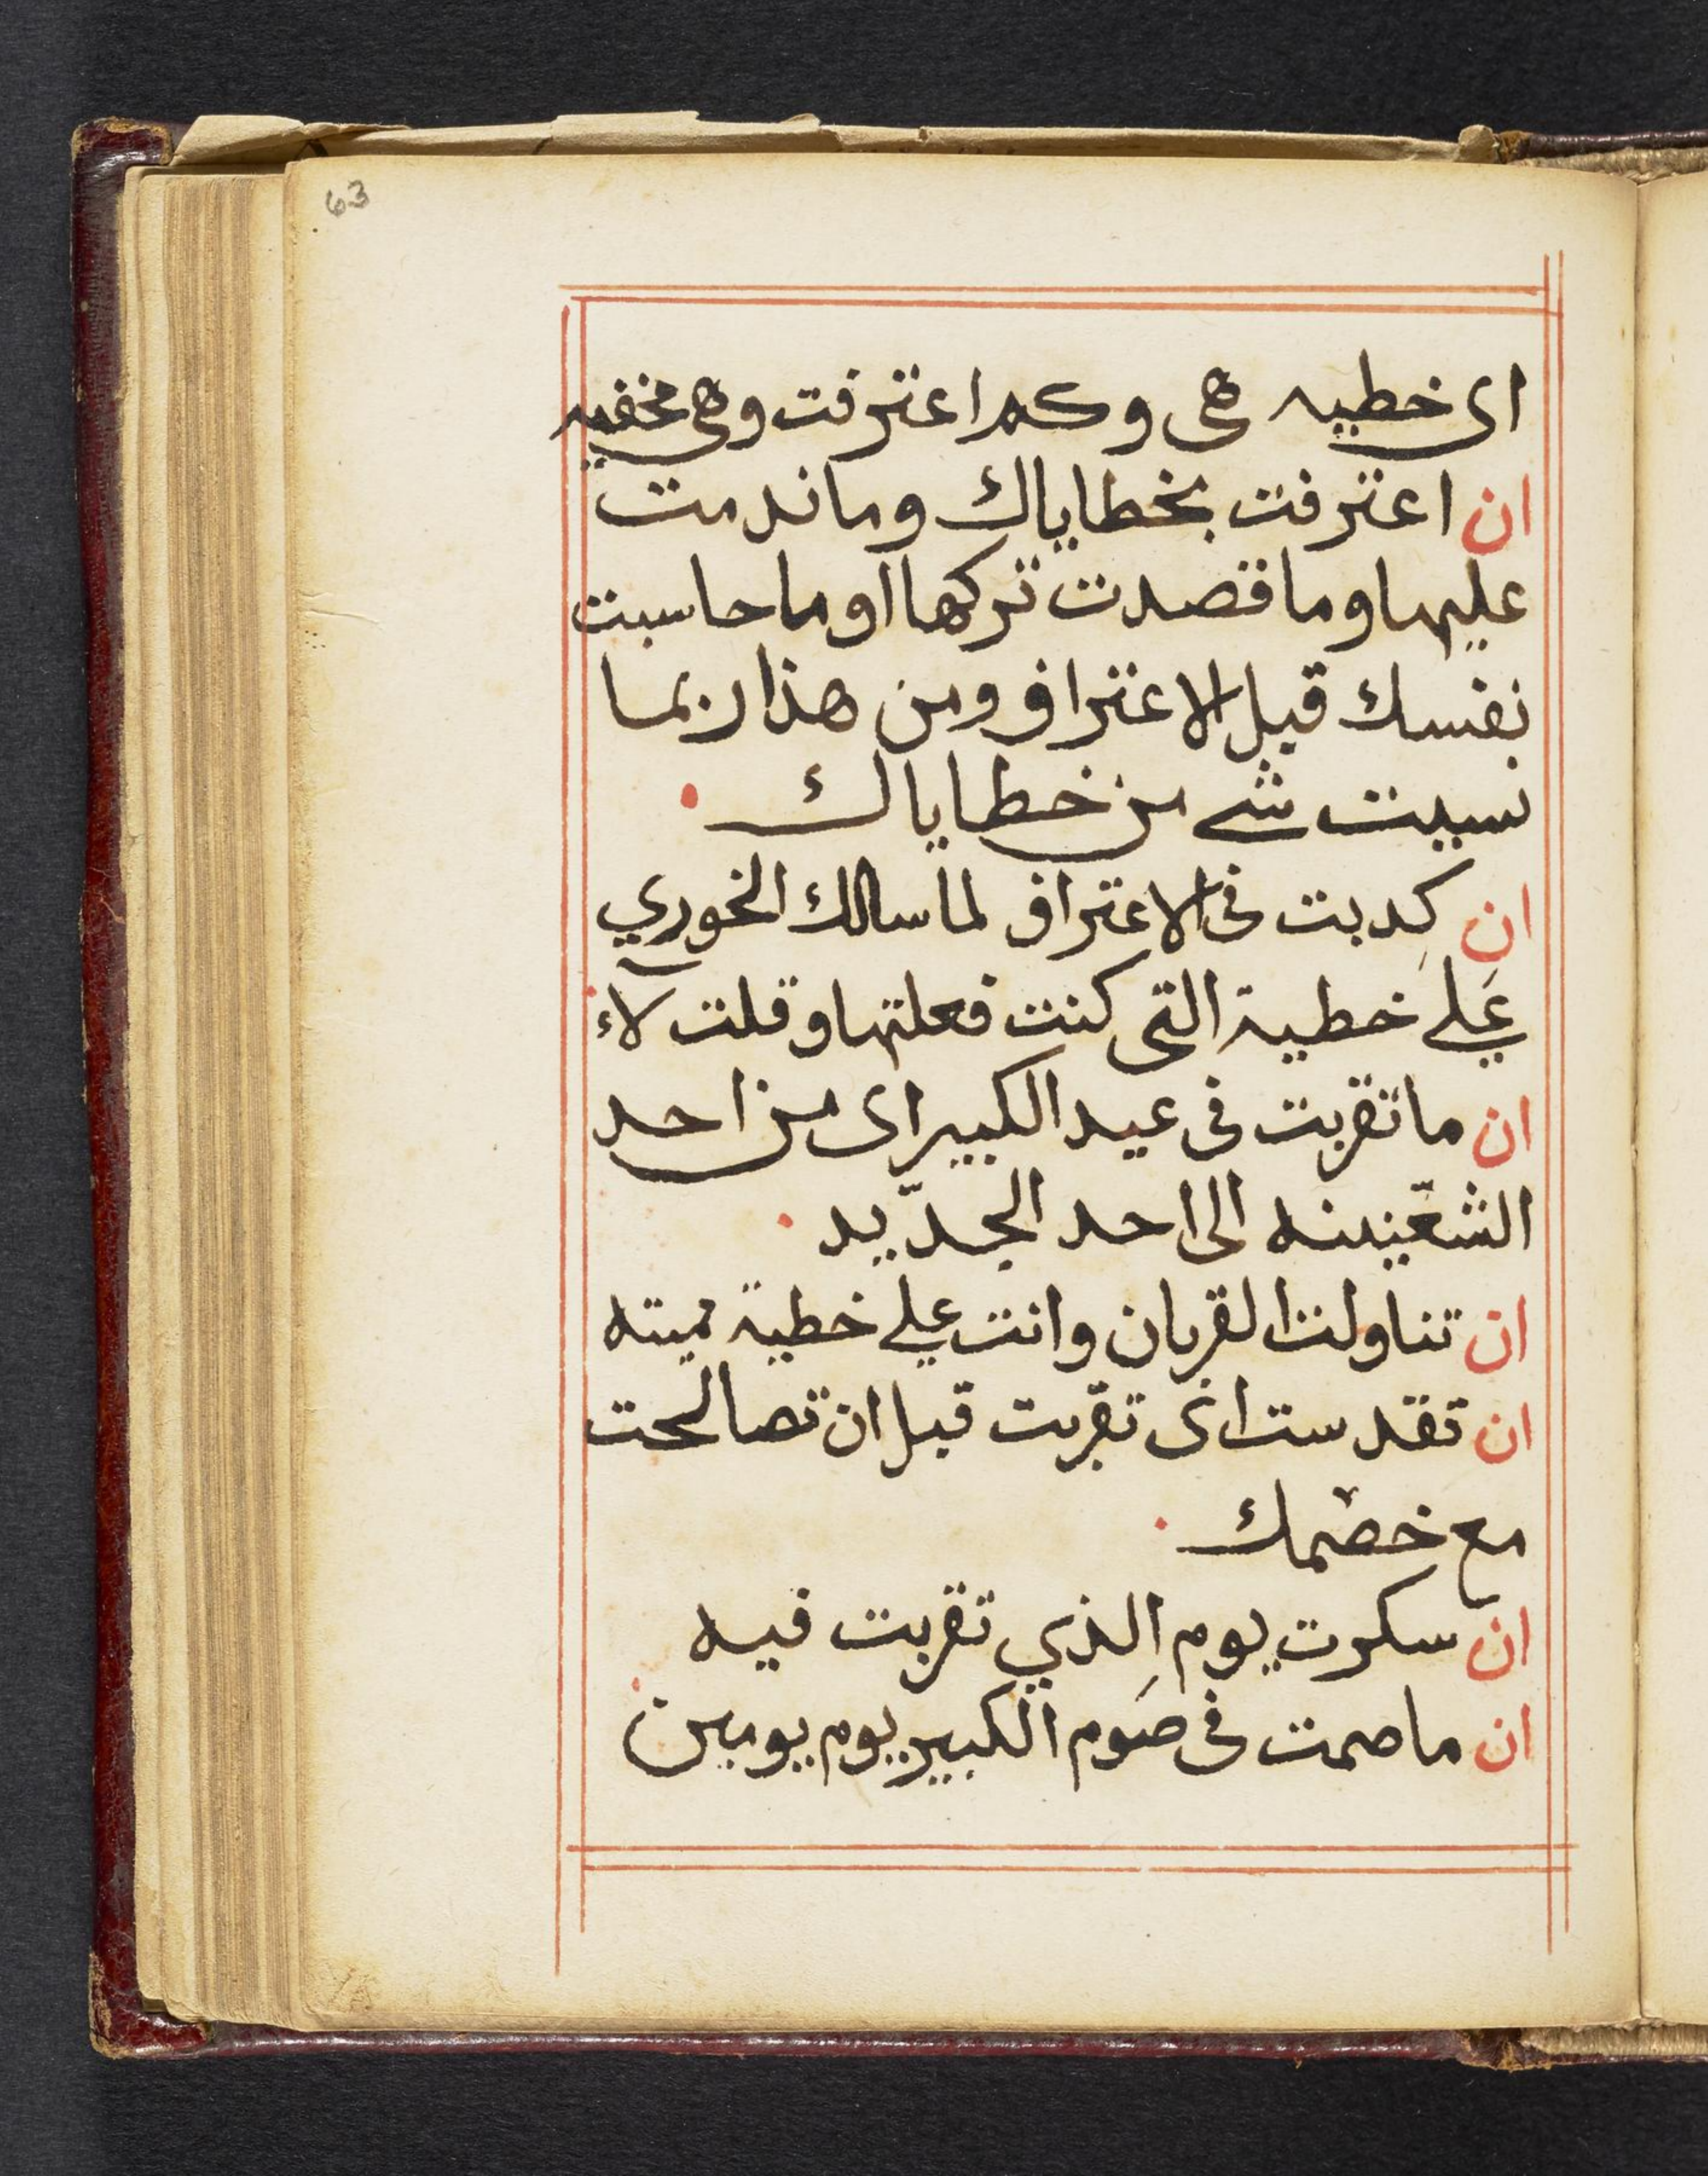 63
اى خطيه هى وكم اعترفت وهى مخفيه
ان اعترفت بخطاياك وما ندمت
عليها وما قصدت تركها او ما حاسبت
نفسك قبل الاعتراف ومن هذا ربما
نسيت شے من خطاياك
ان كدبت فى الاعتراف لما سالك الخوري
عَلي خطية التى كنت فعلتها وقلت لاء
ان ما تقربت فى عيد الكبير اى من احد
الشعّنينه الى احد الجدّيد
ان تناولت القربان وانت علي خطية مميته
ان تقدست اى تقربت قبل ان تصالحت
مع خصمك
ان سكرت يوم الذي تقربت فيه
ان ما صمت فى صَوم الكبير يوم يومين